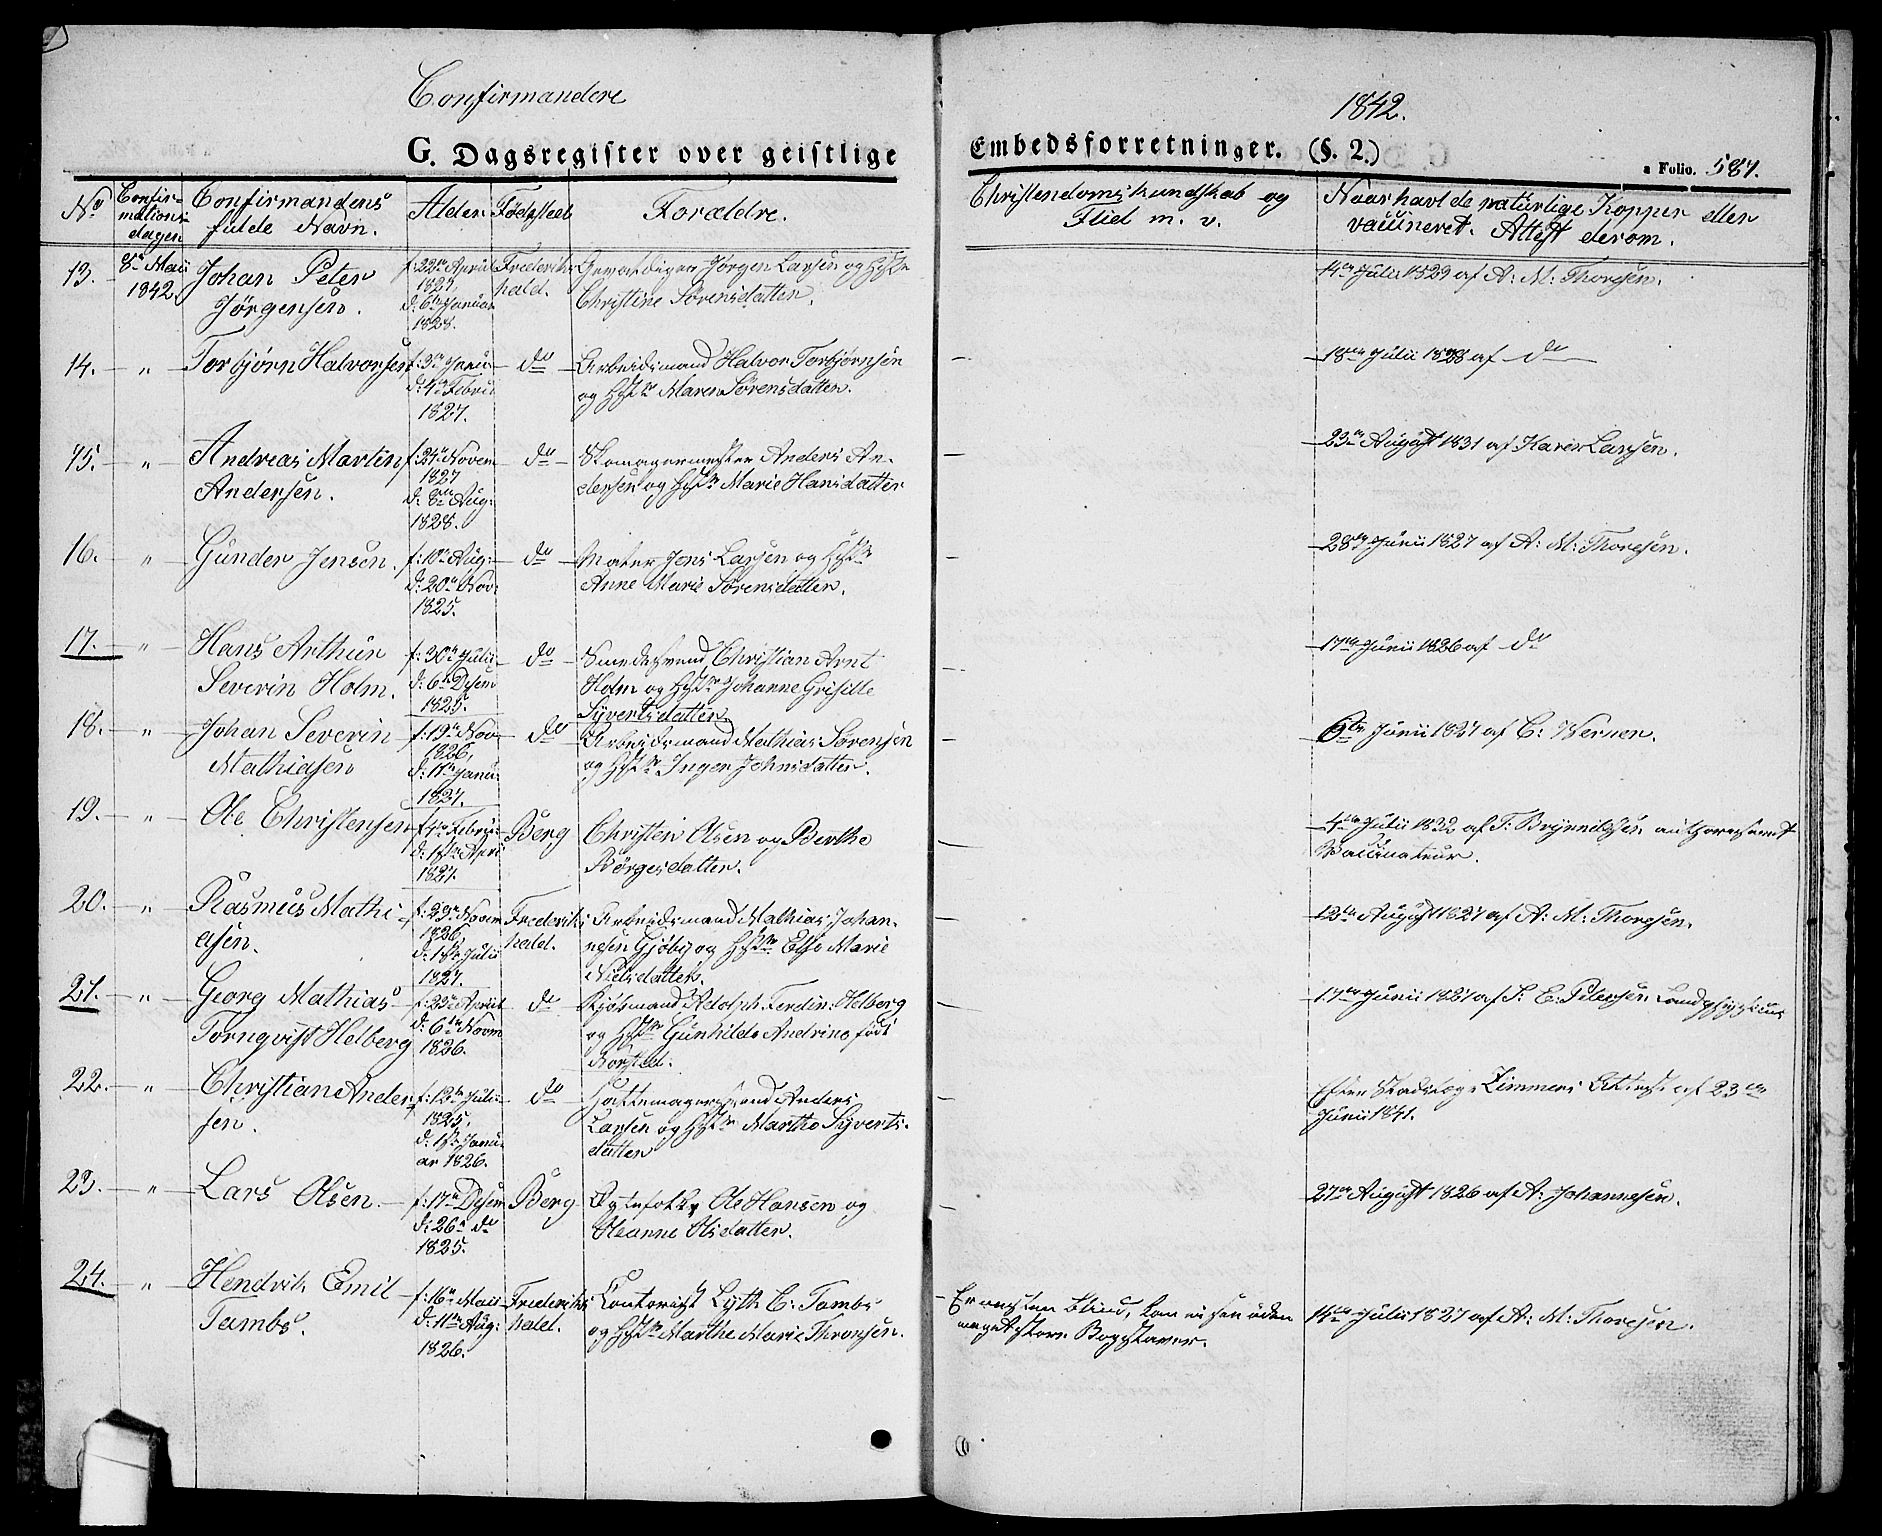 Confirmandere
1842.
G. Dagsregister over geistlige
Embedsforretninger. (§. 2.)
a Folio. 587.
No
Confir-
mations
dagen
Confirmandens
fulde Navn.
Alder
Fødested
Forældre.
Christendomskundskab og
Flid m. v.
Naar havt de naturlige Kopper eller
vaccineret. Attest derom.
13.
8de Maii
1842
Johan Peter
Jørgensen.
f: 22de April
1827.
d: 6te Januar
1828.
Frederiks
hald.
Jørgen Larsen og
Christine Sørensdatter.
14de Julii 1829 af A: M: Thoresen.
14. — „ —
Torbjørn Halvorsen
f: 3die Janu-
d: 4de Febru
1827.
do
Arbeidsmand Halvor Torbjørnsen
og Hstr Maren Sørensdatter.
18de Julii 1828 af do
15. — „ —
Andreas Martin
Andersen.
f: 21de Novem
1827
d: 8de Aug:
1828.
do
Skomagermester Anders An-
dersen og Hstr Marie Hansdatter
23de August 1831 af Karen Larsen.
16. — „ —
Gunder Jensen.
f: 10de Aug:
d: 20de Nov:
1825.
do
Mater Jens Larsen og Hstr
Anne Marie Sørensdatter.
28de Junii 1827 af A: M: Thoresen.
17. — „ —
Hans Arthur
Severin Holm.
f: 30te Julii
d: 6te Desem
1825.
do
Smedesvend Christian Arnt
Holm og Hstr Johanne Grisille
Syvertsdatter.
17de Junii 1826 af do
18. — „ —
Johan Severin
Mathiasen
f: 19de Nov
1826,
d: 11te Janu:
1827.
do
Arbeidsmand Mathias Sørensen
og Hstr Inger Johnsdatter.
6te Junii 1827 af C: Werner.
19. — „ —
Ole Christensen
f: 4de Febru:
d: 1ste April
1827.
Berg
Christen Olsen og Berthe
Børgesdatter.
4de Julii 1832 af T: Brynnildsen authoriseret
Vaccinateur.
20. — „ —
Rasmus Mathi
asen.
f: 23de Novem
1826,
d: 1ste Julii
1827.
Frederiks
hald.
Arbeidsmand Mathias Johan-
nesen Gjøby og Hstr Else Marie
Nielsdatter.
12te August 1827 af A: M: Thoresen.
21. — „ —
Georg Mathias
Tornqvist Helberg
f: 23de April
d: 6te Novm
1826.
do
Kjøbmand Adolph Ferdin: Helberg
og Hstr Gunhilde Andrine født
Korsted.
17de Junii 1827 af S: C: Petersen Landphysicus
22. — „ —
Christian Ander
sen.
f: 12te Julii
1825,
d: 1ste Janu-
ar 1826.
do
Hattemagersvend Anders
Larsen og Hstr Marthe Syverts-
datter
Efter Stadslæge Zimmers Attest af 23de
Junii 1841.
23. — „ —
Lars Olsen.
f: 17de Desem
d: 26de do
1825.
Berg
Egtefolk Ole Hansen og
Oleanne Olsdatter.
27de August 1826 af A: Johannesen.
24. — „ —
Hendrik Emil
Tambs.
f: 16de Maii
d: 11te Aug:
1826.
Frederiks
hald.
Contorist Lyth C: Tambs
og Hstr Marthe Marie Thronsen.
Er næsten blind, kan ei see uden
meget store Bogstaver.
14de Julii 1827 af A: M: Thoresen.